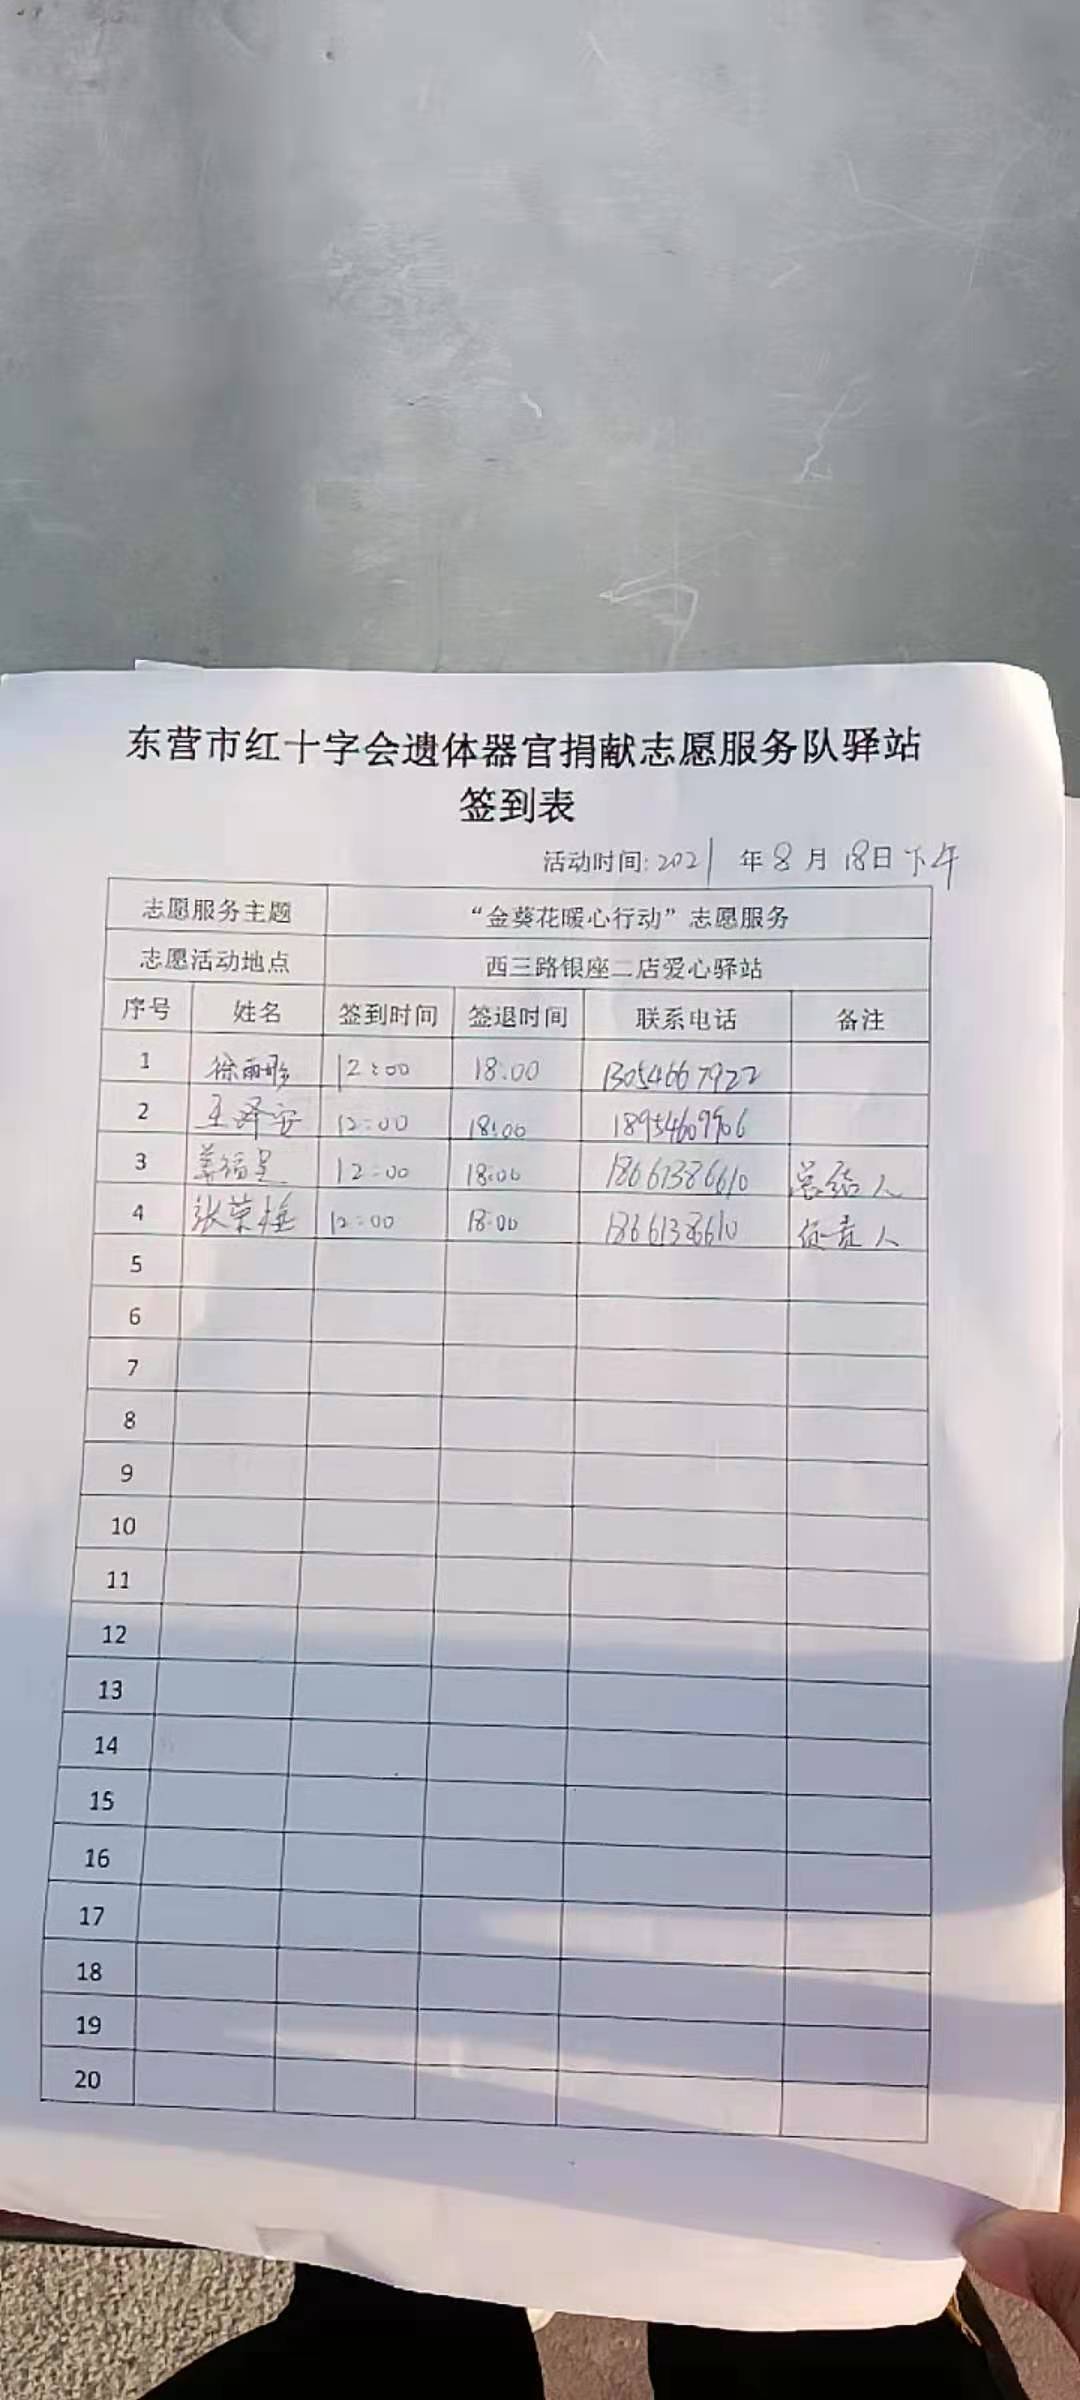 东营市红十字会遗体器官捐献志愿服务队驿站
签到表
活动时间: 2021 年 8 月 18日 下午
志愿服务主题 “金葵花暖心行动”志愿服务
志愿活动地点 西三路银座二店爱心驿站
序号 姓名 签到时间 签退时间 联系电话 备注
1 徐雨彤 12:00 18:00 13054667922
2 王泽安 12:00 18:00 18954609906
3 姜福星 12:00 18:00 18661386610 总结人
4 张荣梅 12:00 18:00 1866138610 负责人
5
6
7
8
9
10
11
12
13
14
15
16
17
18
19
20